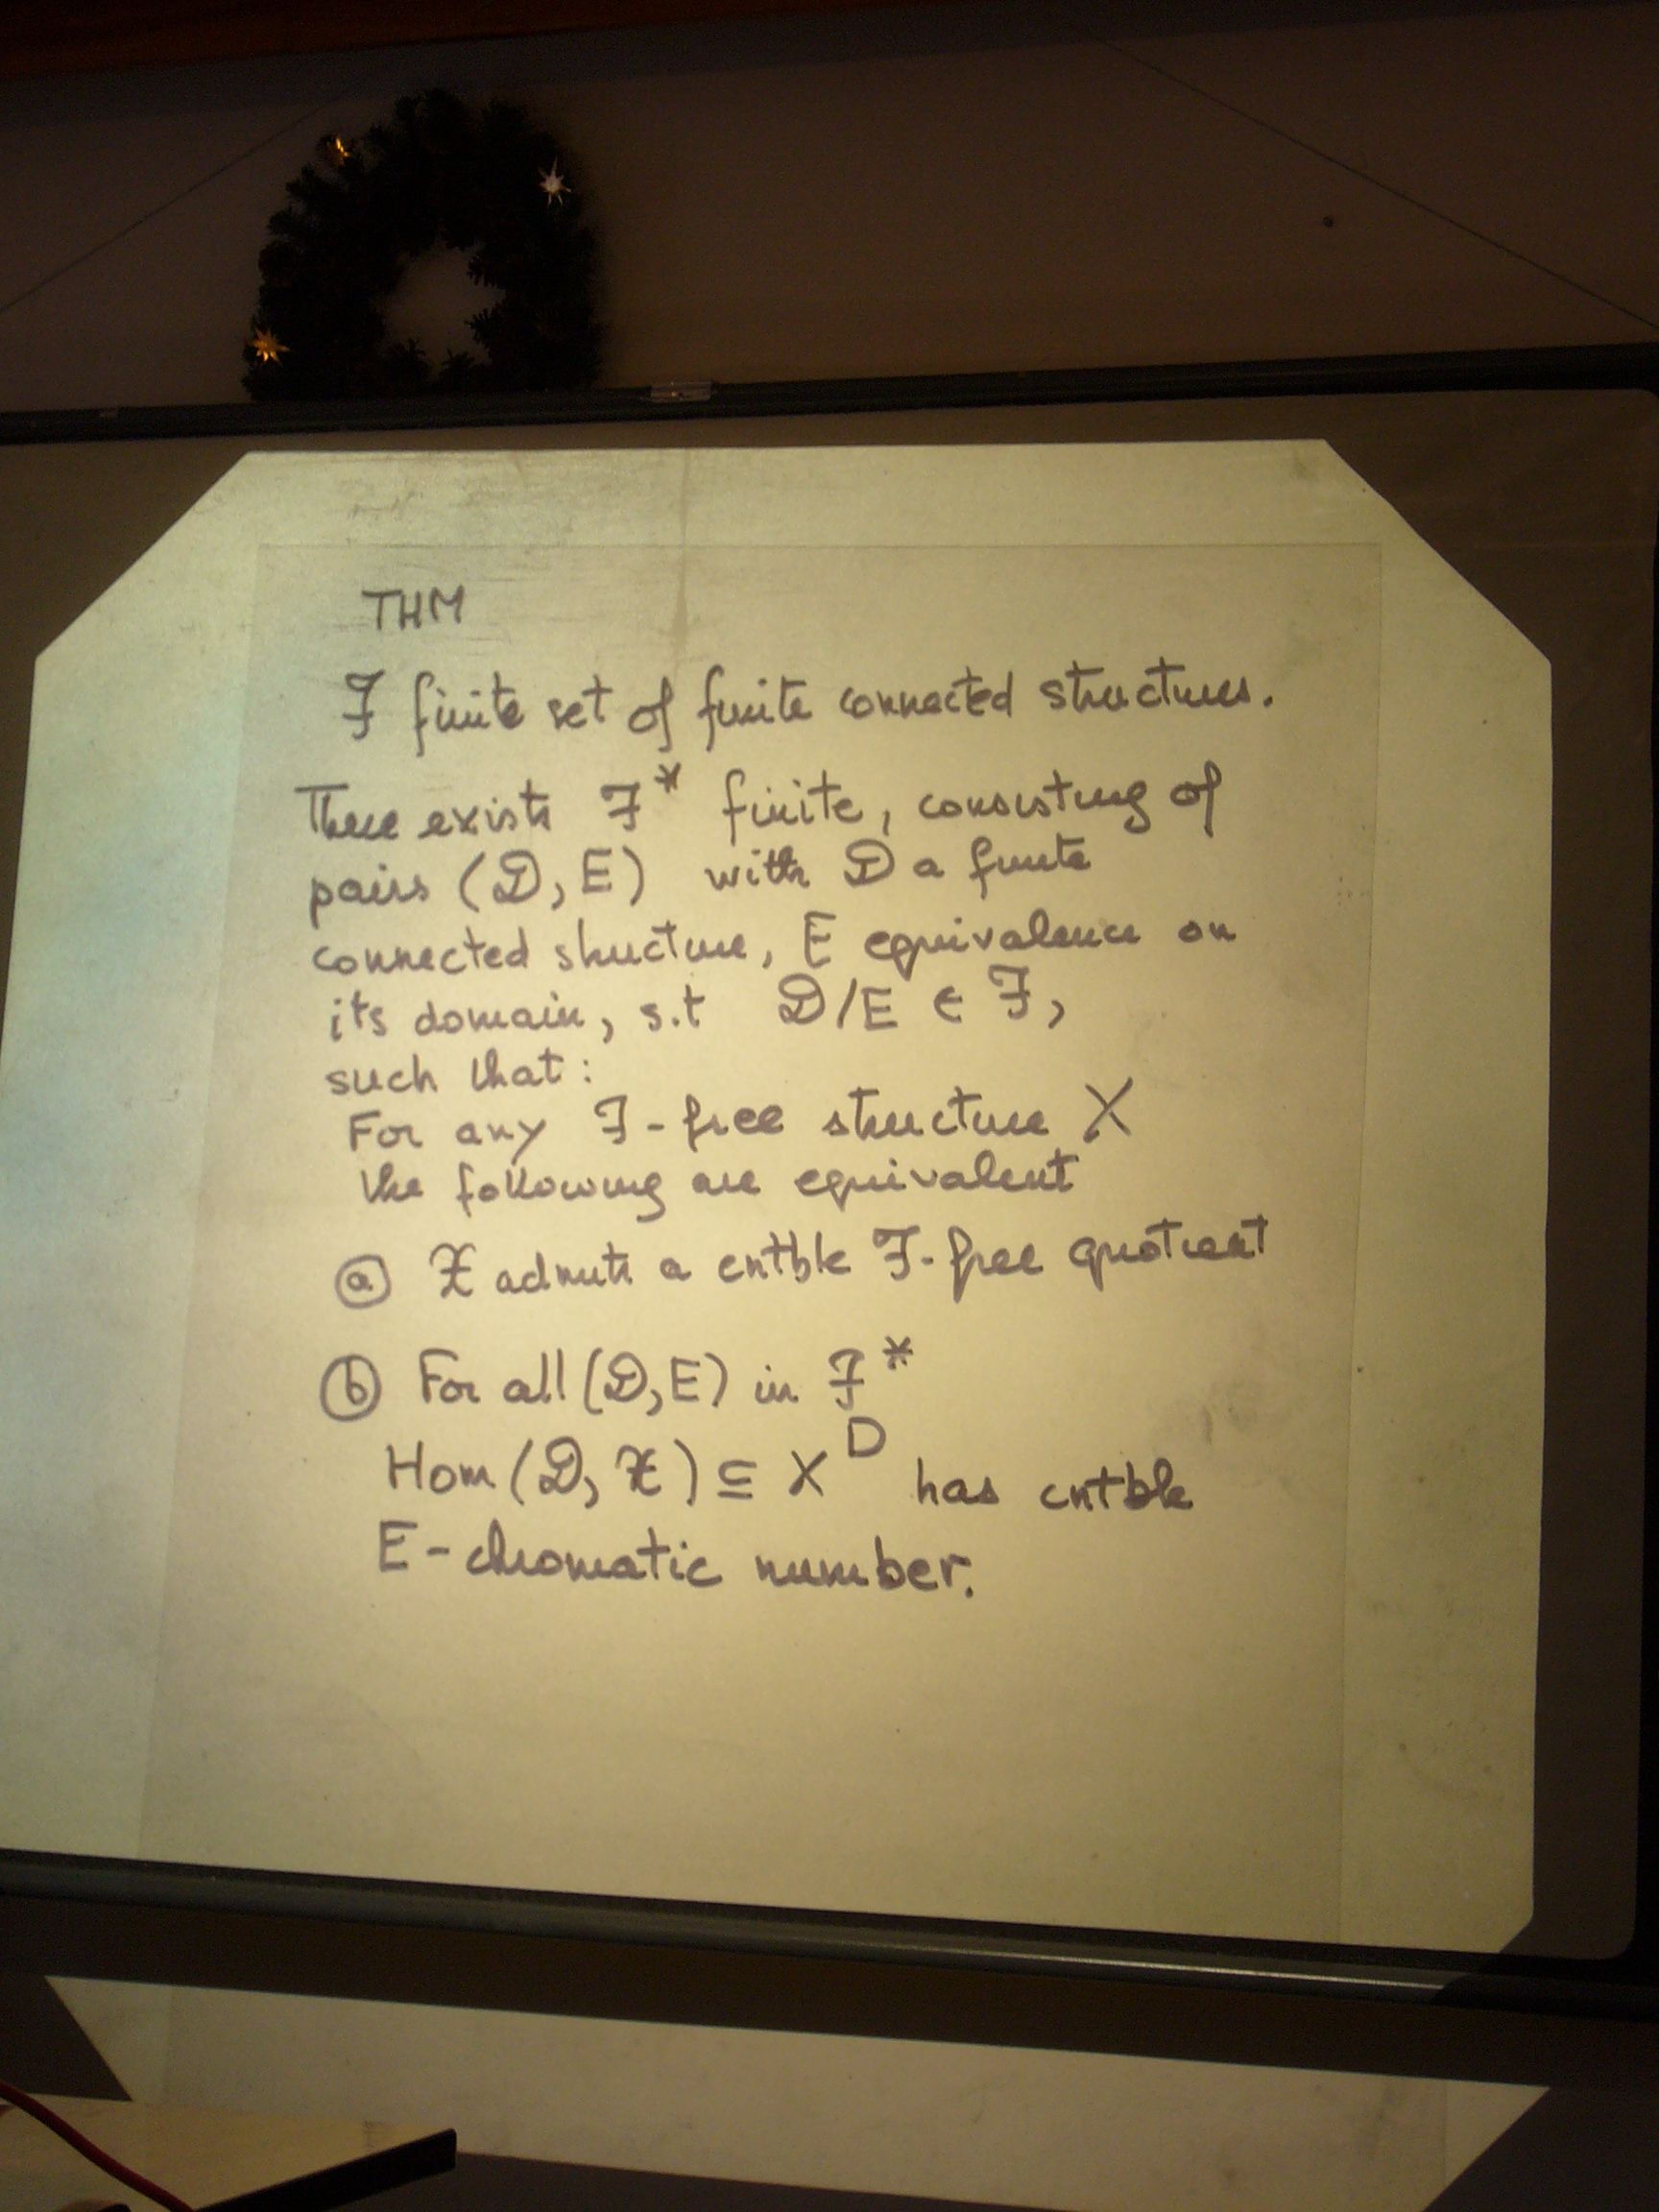 THM
ℱ finite set of finite connected structures.
There exists ℱ* finite, consisting of
pairs (𝒟, E) with 𝒟 a finite
connected structure, E equivalence on
its domain, s.t 𝒟/E ∈ ℱ,
such that:
For any ℱ-free structure X
the following are equivalent
ⓐ 𝒳 admits a cntble ℱ-free quotient
ⓑ For all (𝒟, E) in ℱ*
Hom(𝒟, 𝒳) ⊆ X^D has cntble
E-chromatic number.